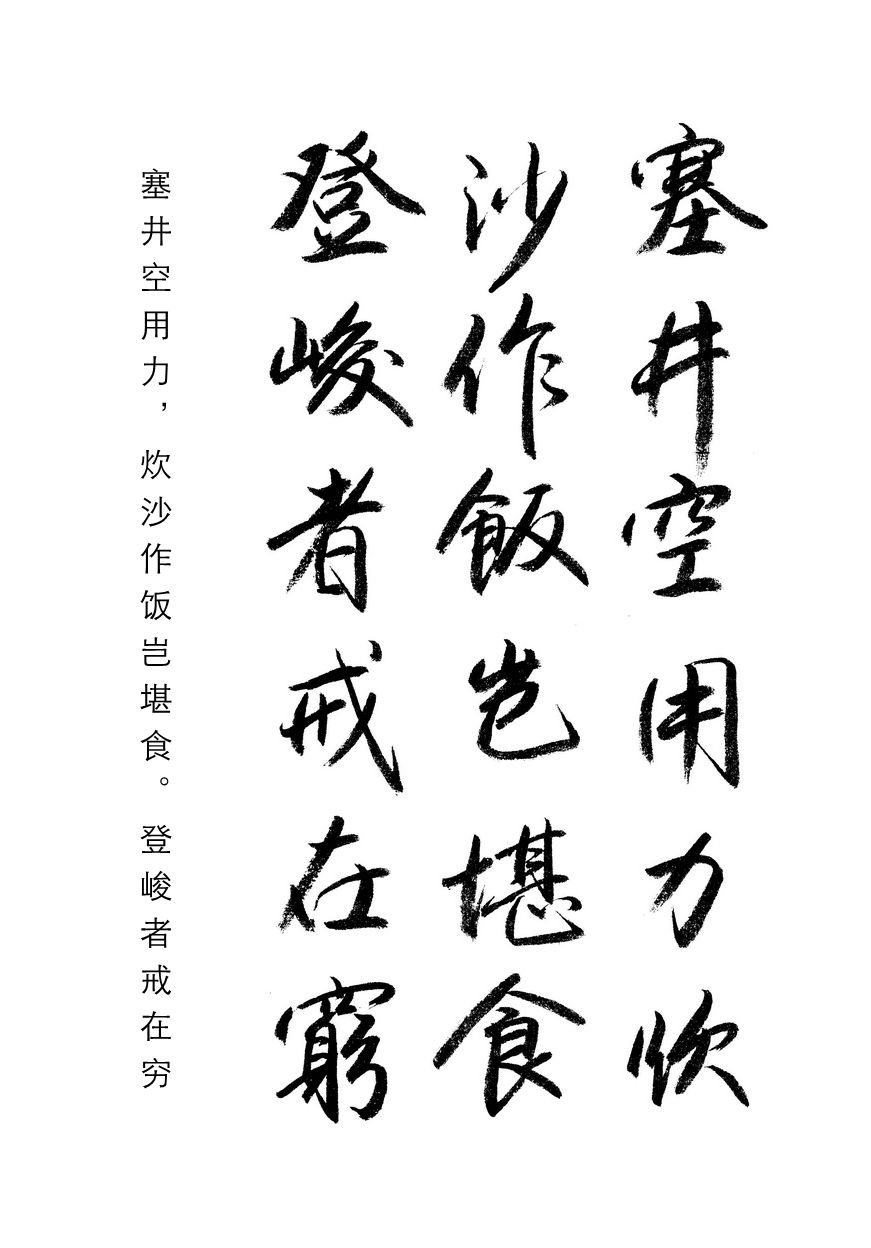 塞井空用力炊
沙作飯岂堪食
登峻者戒在窮
塞井空用力，炊沙作饭岂堪食。登峻者戒在穷